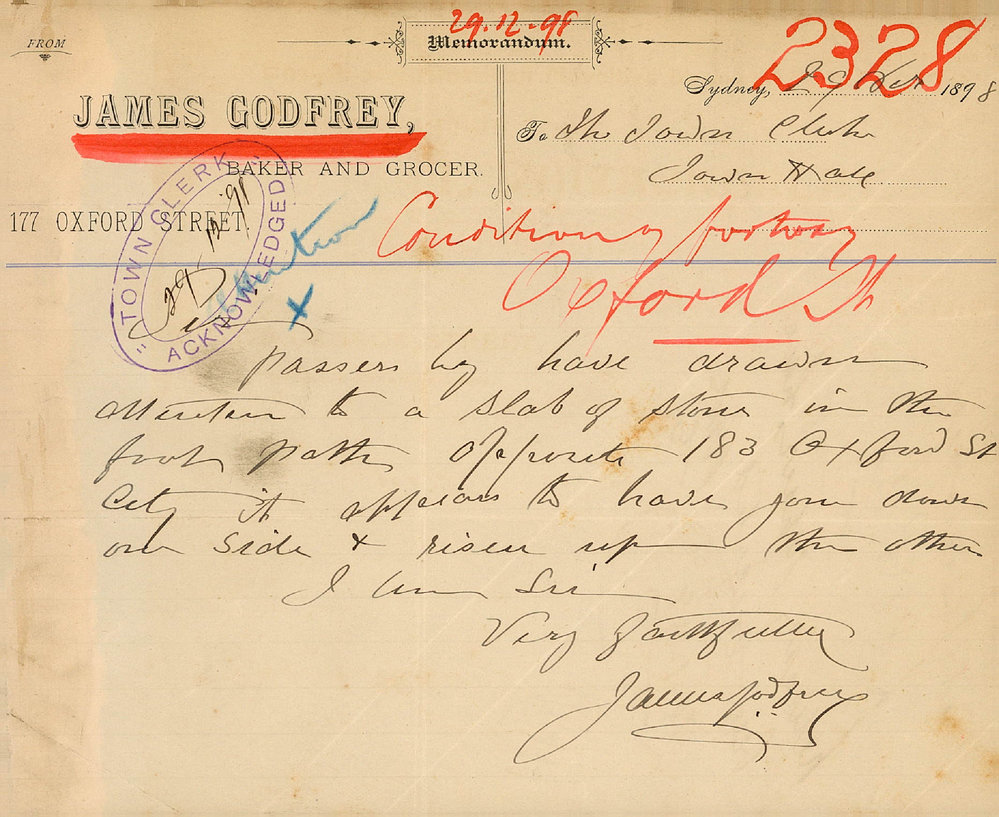 29.12.98
FROM
Memorandum.
2328
Sydney, 29 Dec 1898
JAMES GODFREY,
BAKER AND GROCER.
177 OXFORD STREET.
To The Town Clerk
Town Hall
"TOWN CLERK"
29.12.98
ACKNOWLEDGED
Condition of footway
Oxford St
x
Sir
Passers by have drawn
attention to a slab of stone in the
foot path opposite 183 Oxford St
City it appears to have gone down
one side & risen up the other
I am Sir
Very faithfully
James Godfrey